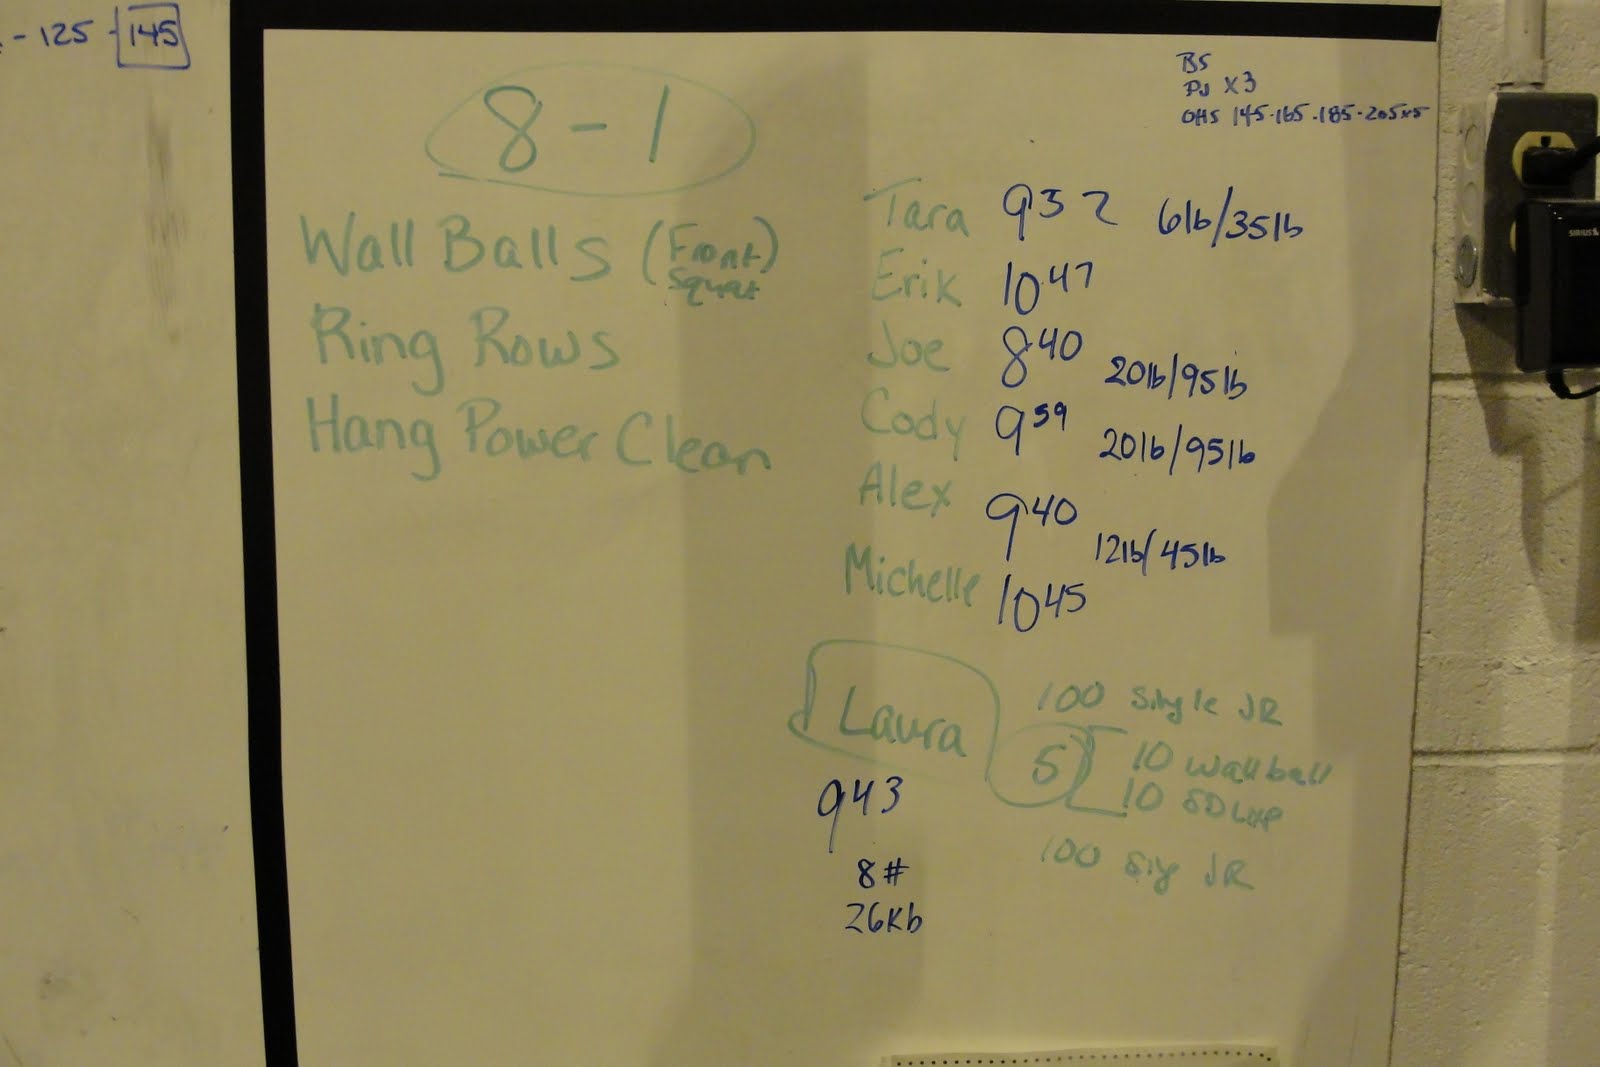 - 125 - 145
BS
PJ X3
OHS 145·165·185·205x5
8 - 1
Wall Balls (Front Squat)
Ring Rows
Hang Power Clean
Tara 9 32 6lb/35lb
Erik 10 47
Joe 8 40 20lb/95lb
Cody 9 59 20lb/95lb
Alex 9 40 12lb/45lb
Michelle 10 45
Laura
9 43
8#
26Kb
100 Single JR
5
10 Wallball
10 SDLHP
100 Sig JR
SIRIUS